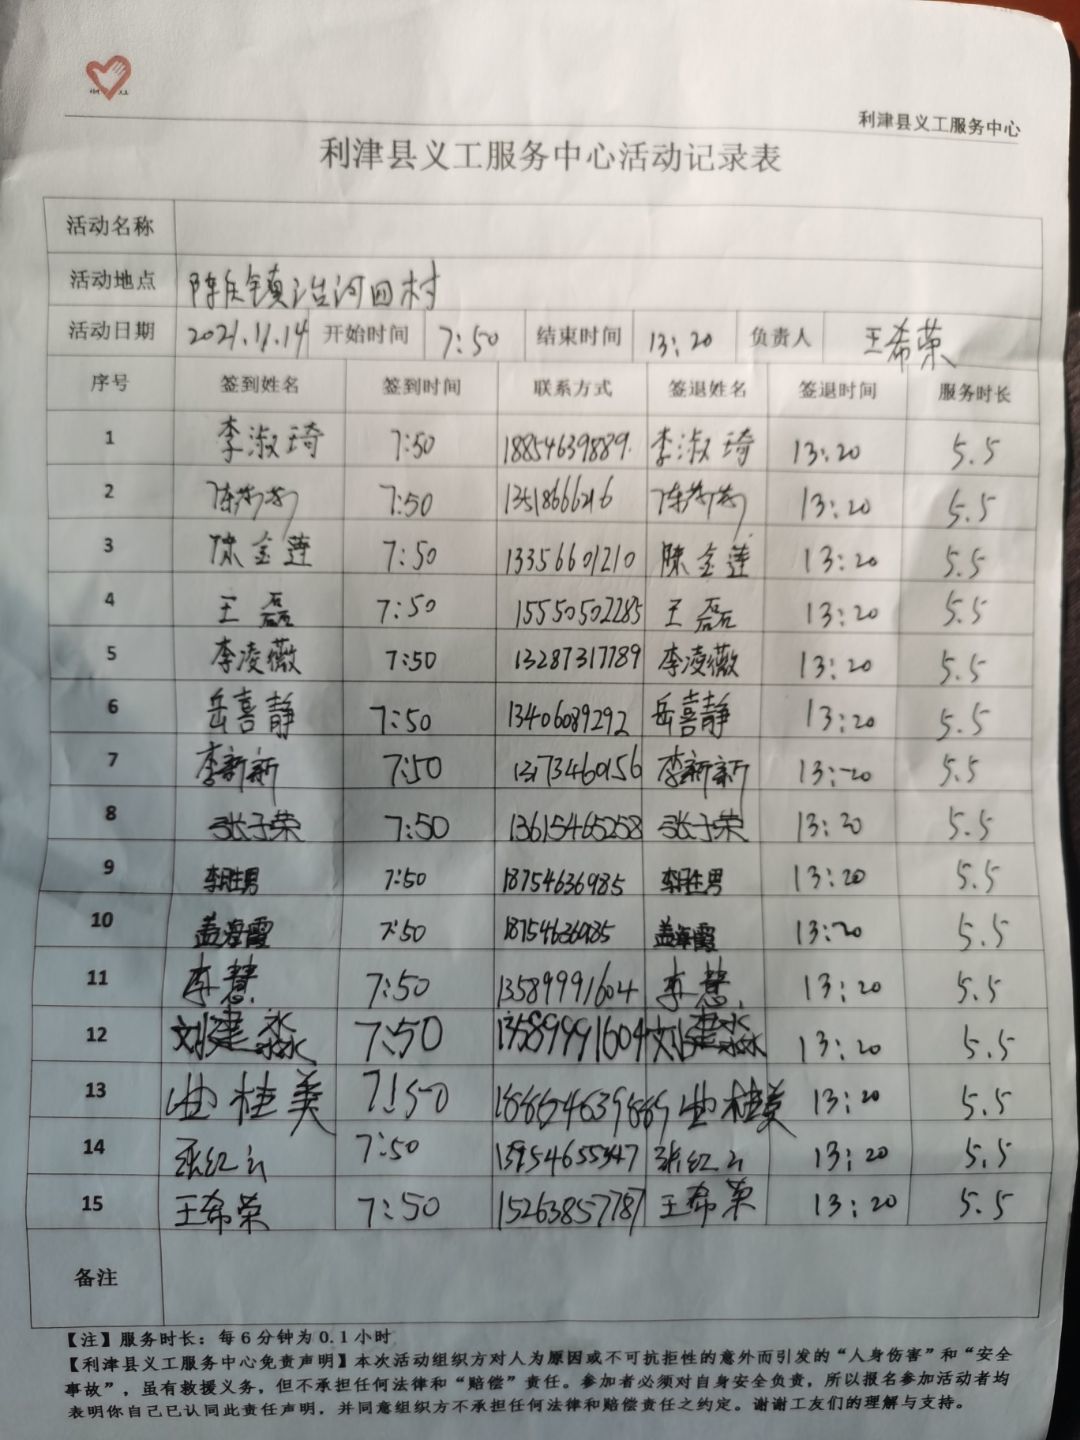 利津县义工服务中心
利津县义工服务中心活动记录表
活动名称
活动地点 陈庄镇沿河四村
活动日期 2021.11.14 开始时间 7:50 结束时间 13:20 负责人 王希荣
序号 签到姓名 签到时间 联系方式 签退姓名 签退时间 服务时长
1 李淑琦 7:50 18854639889 李淑琦 13:20 5.5
2 陈莉莉 7:50 13518666216 陈莉莉 13:20 5.5
3 陈金莲 7:50 13356601210 陈金莲 13:20 5.5
4 王磊 7:50 15550502285 王磊 13:20 5.5
5 李凌薇 7:50 13287317789 李凌薇 13:20 5.5
6 岳喜静 7:50 13406089292 岳喜静 13:20 5.5
7 李新新 7:50 13173460156 李新新 13:20 5.5
8 张子荣 7:50 13615465258 张子荣 13:20 5.5
9 李胜男 7:50 18754636985 李胜男 13:20 5.5
10 盖海霞 7:50 18754636985 盖海霞 13:20 5.5
11 李慧 7:50 13589991604 李慧 13:20 5.5
12 刘建淼 7:50 13589991604 刘建淼 13:20 5.5
13 曲桂美 7:50 曲桂美 13:20 5.5
14 张红云 7:50 张红云 13:20 5.5
15 王希荣 7:50 15263857787 王希荣 13:20 5.5
备注
【注】服务时长：每6分钟为0.1小时
【利津县义工服务中心免责声明】本次活动组织方对人为原因或不可抗拒性的意外而引发的“人身伤害”和“安全
事故”，虽有救援义务，但不承担任何法律和“赔偿”责任。参加者必须对自身安全负责，所以报名参加活动者均
表明你自己已认同此责任声明，并同意组织方不承担任何法律和赔偿责任之约定。谢谢工友们的理解与支持。